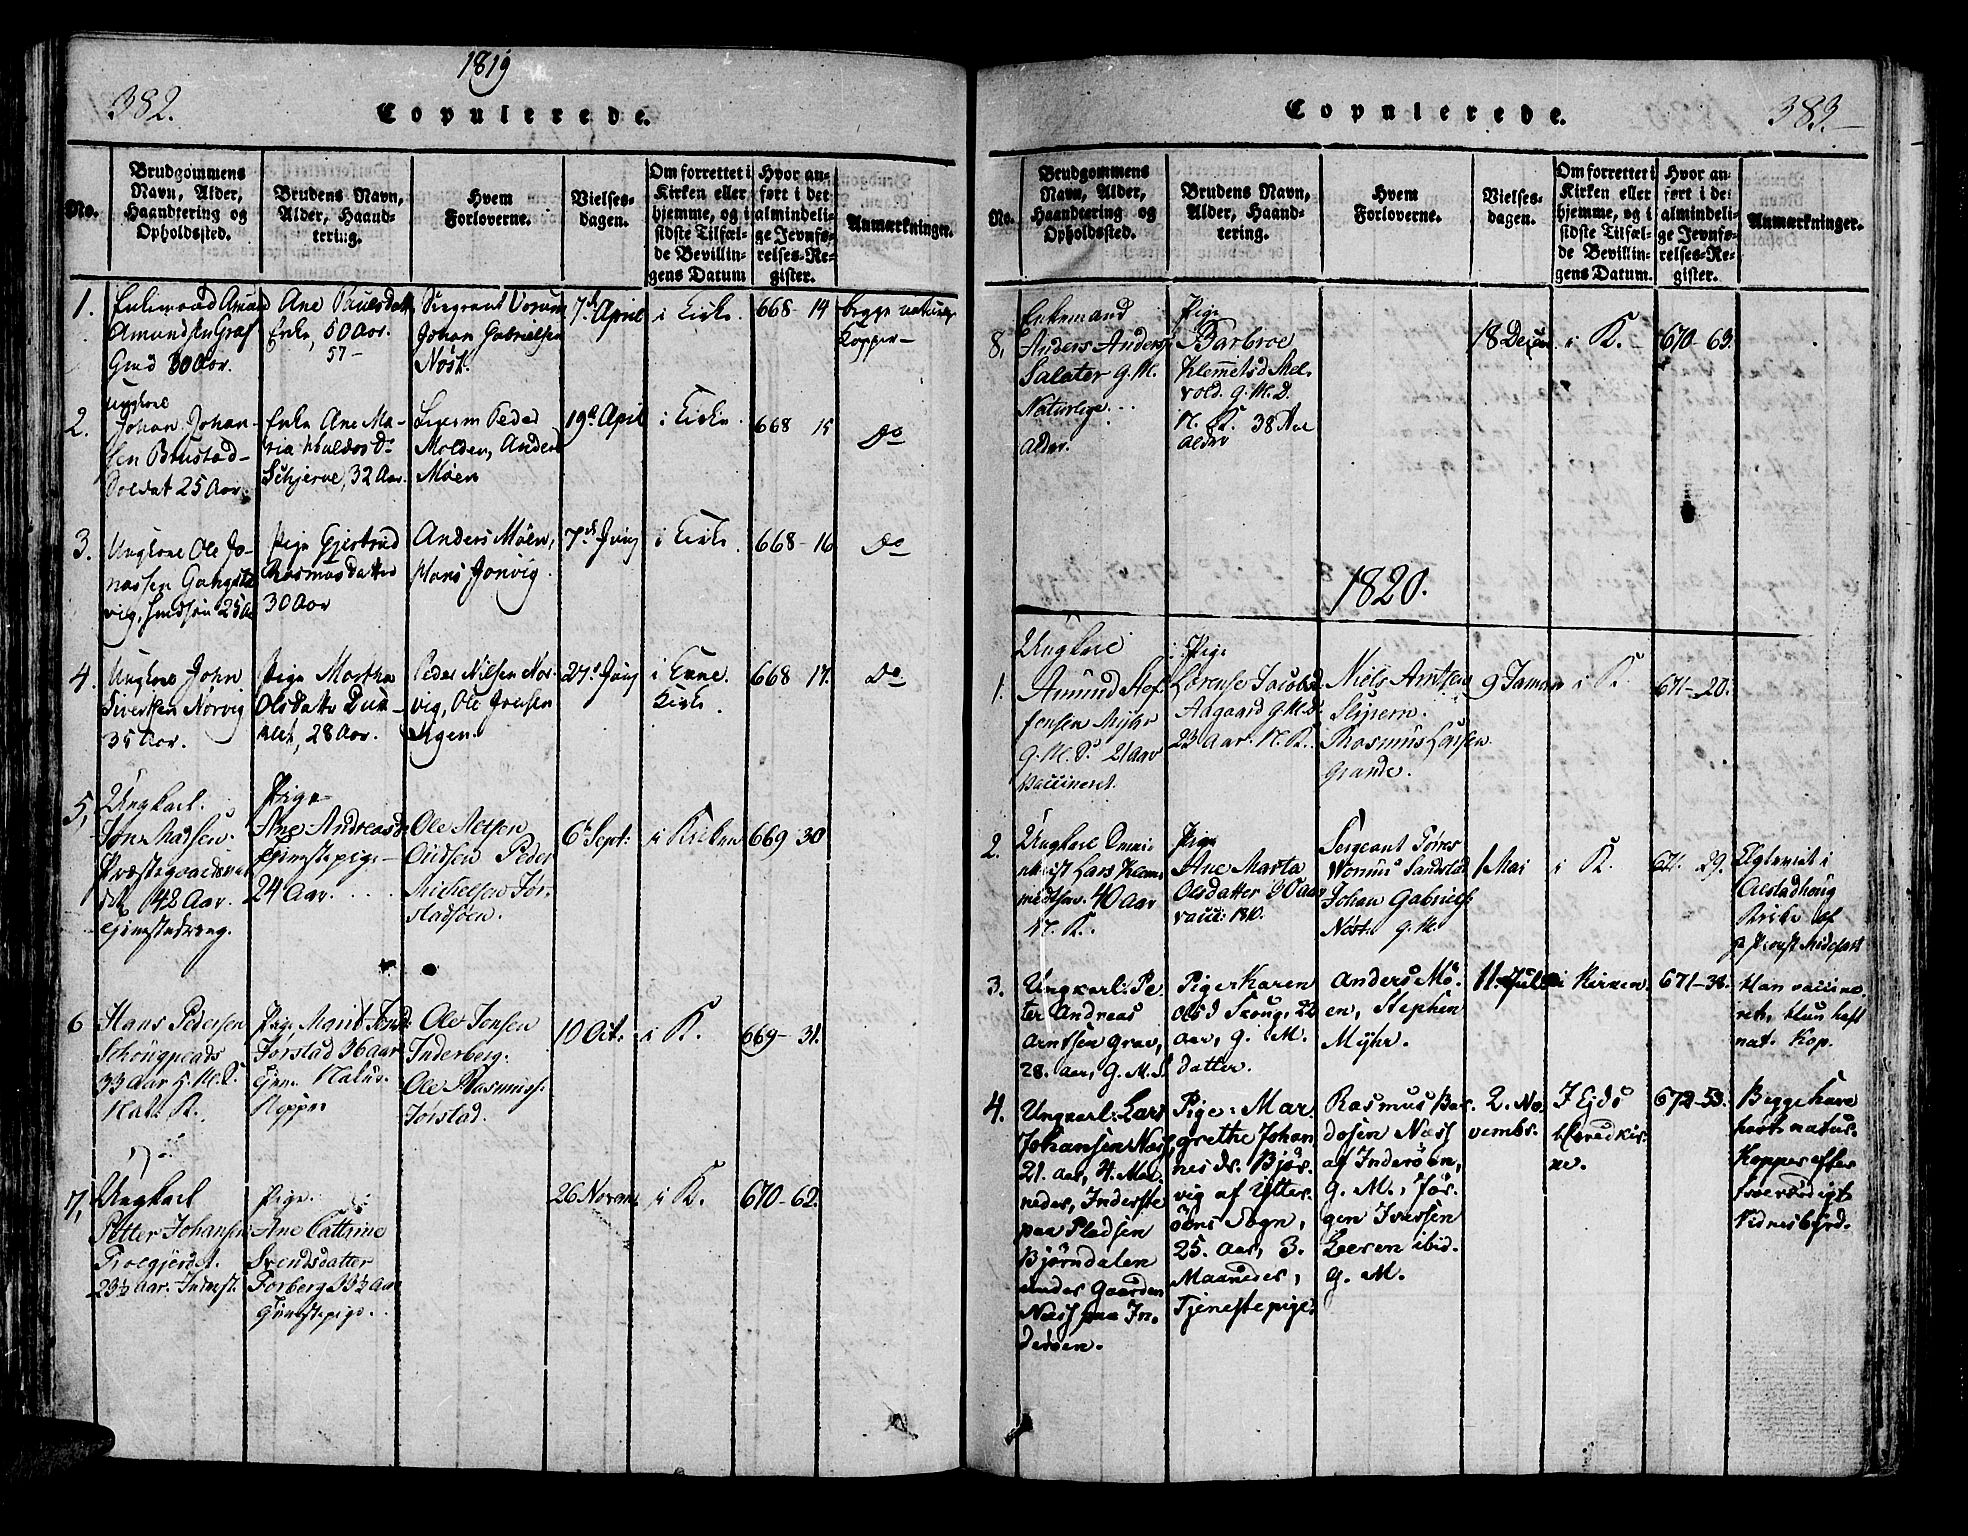 1819
382.
Copulerede.
No.
Brudgommens
Navn, Alder,
Haandtering og
Opholdssted.
Brudens Navn,
Alder, Haand-
tering.
Hvem
Forloverne.
Vielses-
dagen.
Om forrettet i
Kirken eller
hjemme, og i
sidste Tilfæl-
de Bevillin-
gens Datum
Hvor an-
ført i det
almindeli-
ge Jevnfø-
relses-Re-
gister.
Anmærkninger.
1.
Enkemand
Amundsen Graf
Gmd 30 Aar.
Ane Paulsdatt
Enke, 50 Aar.
57 -
Sergeant Vorum
Johan Gabrielsen
Nøst.
7de April
i Kirke.
668 14
begge naturl
Kopper -
2.
Ungkarl
Johan Johan-
sen Brustad
Soldat 25 Aar.
Enke Ane Ma-
ria Do
Schjerve, 32 Aar.
Peder
Molden, Anders
Møen
19de April
i Kirke
668 15
Do
3.
Ungkarl Ole Jo-
nassen
vig, 25 Aar
Pige Gjertrud
Rasmusdatter
30 Aar
Anders Møen,
Hans Jonvig.
7de Juny
i Kirke
668-16
Do
4.
Ungkarl John
Sivertsen Norvig
35 Aar.
Pige Martha
Olsdatter
28 Aar.
Peder Nilsen Nor-
vig, Ole Joensen
27de Juny
i
Kirke.
668 17.
Do
5,
Ungkarl.
Jon Madsen.
42 Aar.
Pige
Ane Andreasd
Tjenestepige -
24 Aar.
Ole
Peder
Michelsen Jør-
stadsøen.
6te Sept:
i Kirken
669 30
6
Hans Pedersen
33 Aar G. M. S.
Nat. K.
Pige Marit
Jørstad 36 Aar
Natur.
Kopper
Ole Jonsen
Inderberg.
Ole Rasmuss:
Jørstad.
10 Oct.
i K.
669- 31.
7,
Ungkarl
Petter Johansen
23½ Aar. Inderst.
Pige.
Ane Cattrine
Svendsdatter
Forberg 33½ Aar
Tjenestepige.
26 Novem
i K.
670-62.
Copulerede.
383.
No.
Brudgommens
Navn, Alder,
Haandtering og
Opholdssted.
Brudens Navn,
Alder, Haand-
tering.
Hvem
Forloverne.
Vielses-
dagen.
Om forrettet i
Kirken eller
hjemme, og i
sidste Tilfæl-
de Bevillin-
gens Datum.
Hvor an-
ført i det
almindeli-
ge Jevnfø-
relses-Re-
gister.
Anmærkninger.
8,
Enkemand
Anders Anders
Salater G. M.
Naturlige...
Pige
Barbroe
Klemetsd
vold. G. M. D.
N. K. 38 Aar
18 Decem
i K.
670-63.
1820.
1.
Ungkarl
Amund Stef-
fensen Myhr
G. M. S. 21 Aar
Vaccineret.
Pige
Lorense Jacobsd
Aagaard G. M. D.
23 Aar. N. K.
Niels Arntsen
Slipern.
Rasmus Larsen
Grande.
9 Januar
i K.
671-20.
2.
Ungkarl
Lars Klem-
medtsen 40 Aar
N. K.
Pige
Ane Marta
Olsdatter 30 Aar
vacc: 1810.
Sergeant Tørres
Wormus Sandstad
Johan Gabriels:
Nøst. G. M.
1 Mai
i K.
671. 29.
i
Alstadhoug
Kirke af
3.
Ungkarl: Pe
ter Andreas
Arntsen Grav,
28. aar, G. M. S.
Pige: Karen
Olsd Skoug, 22
aar, G. M.
datter.
Anders Mö-
en, Stephen
Myhr.
11. Julii
i Kirken.
671-38.
Han vaccine-
ret, hun haft
nat. Kop.
4.
Ungkarl: Lars
Johansen Næss,
21. aar, 4. Maa-
neder, Inderste
paa Pladsen
Bjørndalen
under Gaarden
Næss paa In-
deröen.
Pige: Mar
grethe Johan
nesdr. Bjør-
vig af Ytter-
öens Sogn,
25. aar, 3.
Maaneder,
Tjenestepige.
Rasmus Bar-
dosen Næss
af Inderöen,
G. M., Jör-
gen Iversen
Leeren ibid.
G. M.
2. No-
vembr.
I Eids
Hovedkir-
ke.
672-53.
Begge have
havt natur.
Kopper efter
troværdigt
Vidnesbyrd.